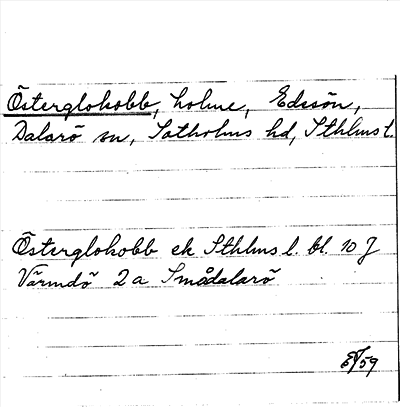 Österglokobb, holme, Edesön,
Dalarö sn, Sotholms hd, Sthlms l.
Österglokobb ek Sthlms l. bl. 10 J
Värmdö 2a Smådalarö
/59